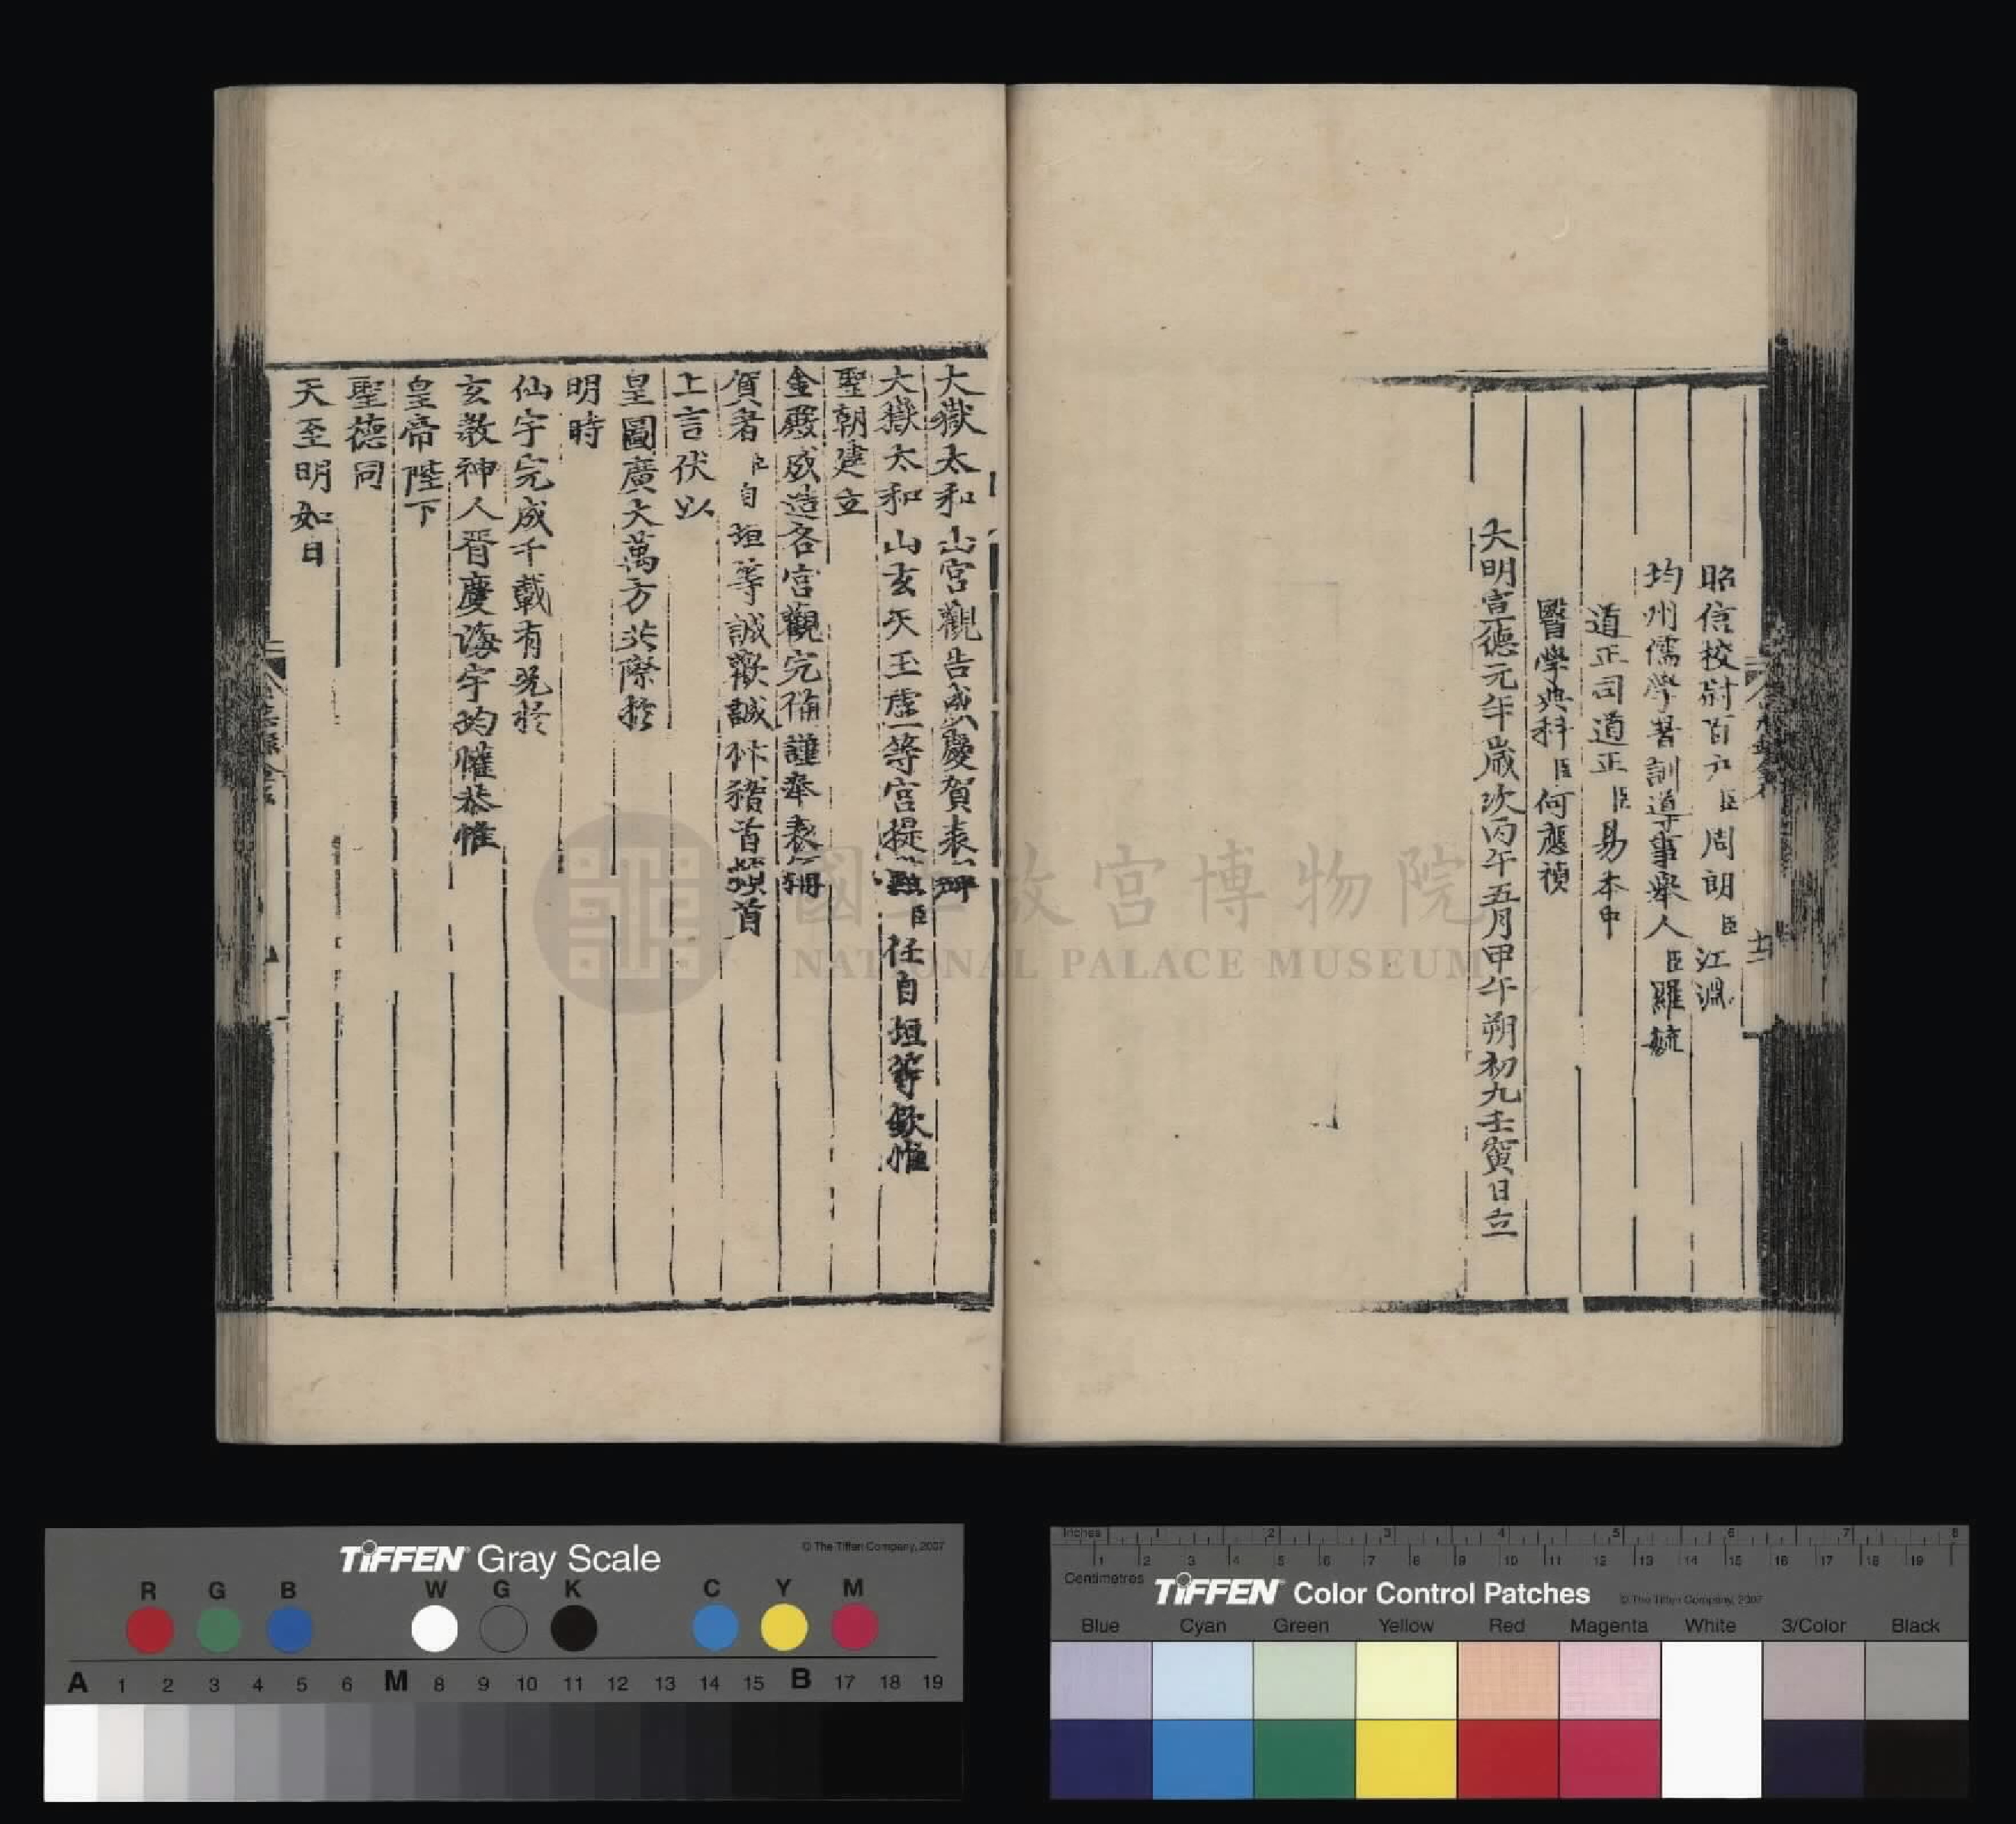 昭信校尉百戶臣周朗臣江淵
均州儒學署訓導事舉人臣羅毓
道正司道正臣易本中
醫學典科臣何應禎
大明宣德元年歲次丙午五月甲午朔初九壬寅日立
大嶽太和山宮觀告成慶賀表碑
大嶽太和山玄天玉虛等宮提點臣任自垣等欽惟
聖朝建立
金殿成造各宮觀完備謹奉表箋冊
賀者臣自垣等誠歡誠忭稽首頓首
上言伏以
皇圖廣大萬方共際於
明時
仙宇完成千載有光於
玄教神人胥慶海宇均懽恭惟
皇帝陛下
聖德同
天至明如日
國立故宮博物院
NATIONAL PALACE MUSEUM
TIFFEN Gray Scale
© The Tiffen Company, 2007
R G B W G K C Y M
A 1 2 3 4 5 6 M 8 9 10 11 12 13 14 15 B 17 18 19
Inches 1 2 3 4 5 6 7 8
1 2 3 4 5 6 7 8 9 10 11 12 13 14 15 16 17 18 19
Centimetres
TIFFEN Color Control Patches
© The Tiffen Company, 2007
Blue Cyan Green Yellow Red Magenta White 3/Color Black